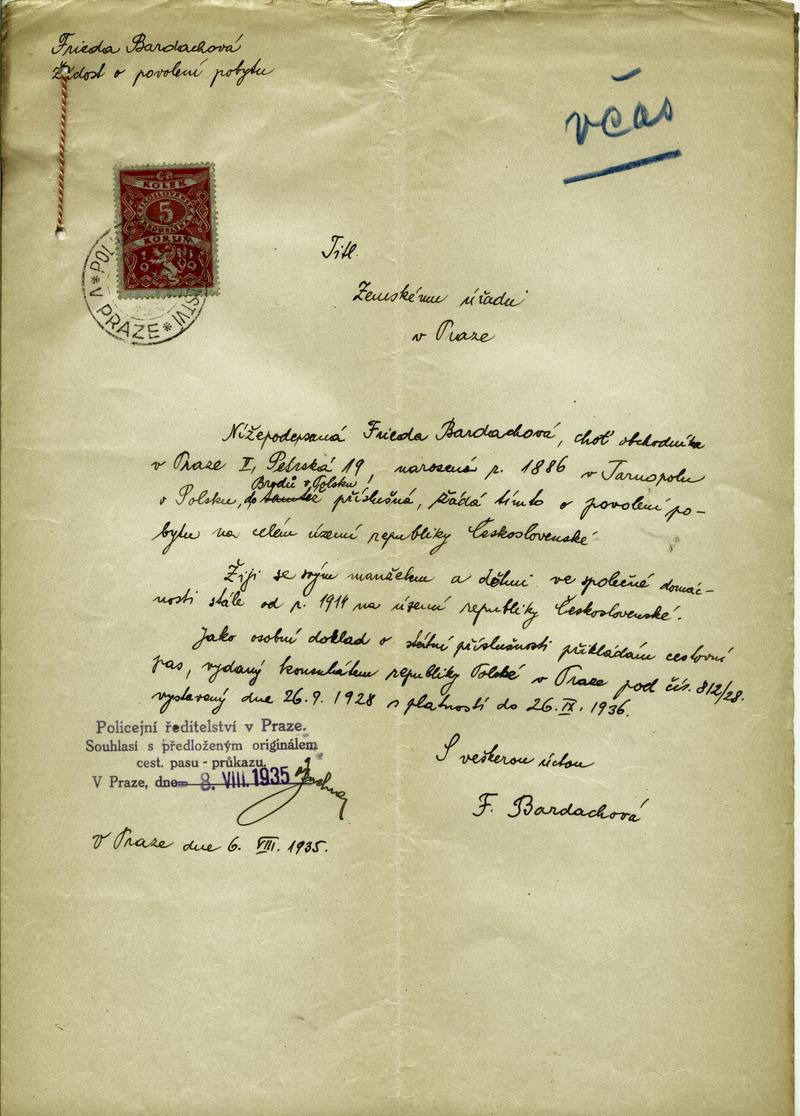 Frieda Bardachová
Žádost o povolení pobytu
včas
KOLEK
5
KORUN
V PRAZE
Titl.
Zemskému úřadu
v Praze
Nížepodepsaná Frieda Bardachová, choť obchodníka
v Praze II, Petrská 19, narozená r. 1886 v Tarnopolu
Brodů v Polsku
v Polsku, do tamtéž příslušná, žádá tímto o povolení po-
bytu na celém území republiky Československé
Žiji se svým manželem a dětmi ve společné domác-
nosti stále od r. 1914 na území republiky Československé.
Jako osobní doklad o státní příslušnosti přikládám cestovní
pas, vydaný konsulátem republiky Polské v Praze pod čís. 812/28.
vystavený dne 26.9. 1928 s platností do 26.IX. 1936.
Policejní ředitelství v Praze.
Souhlasí s předloženým originálem
cest. pasu - průkazu.
V Praze, dne 8. VIII. 1935
S veškerou úctou
F. Bardachová
V Praze dne 6. VIII. 1935.